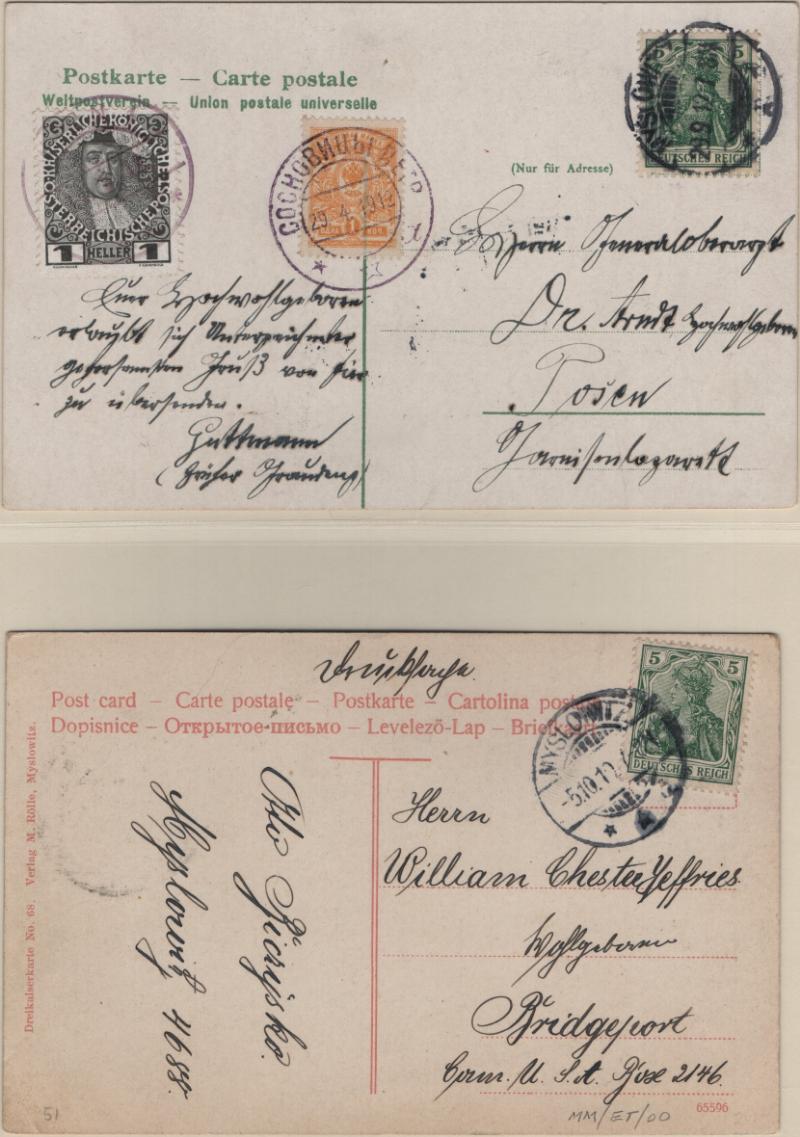 Postkarte — Carte postale
Weltpostverein — Union postale universelle
5
DEUTSCHES REICH
29.9.12
(Nur für Adresse)
1 HELLER 1
СОСНОВИЦЫ
29.4.191
Euer Hochwohlgeboren
erlaubt sich Unterzeichneter
gehorsamsten Gruß von hier
zu übersenden.
Guttmann
(früher Graudenz)
Herrn Generaloberarzt
Dr. Arndt Hochwohlgeboren
Posen
Garnisonlazarett
Drucksache
Post card – Carte postale – Postkarte – Cartolina postale
Dopisnice – Открытое письмо – Levelezõ-Lap – Briefkaart
5 5
DEUTSCHES REICH
MYSLOWITZ
-5.10.12
Dreikaiserkarte No. 68. Verlag M. Rölle, Myslowitz.
Otto
Myslowitz 4688.
Herrn
William Chester Jeffries
Wohlgeboren
Bridgeport
Conn. U. S. A. Box 2146.
65596
51
MM/ET/00